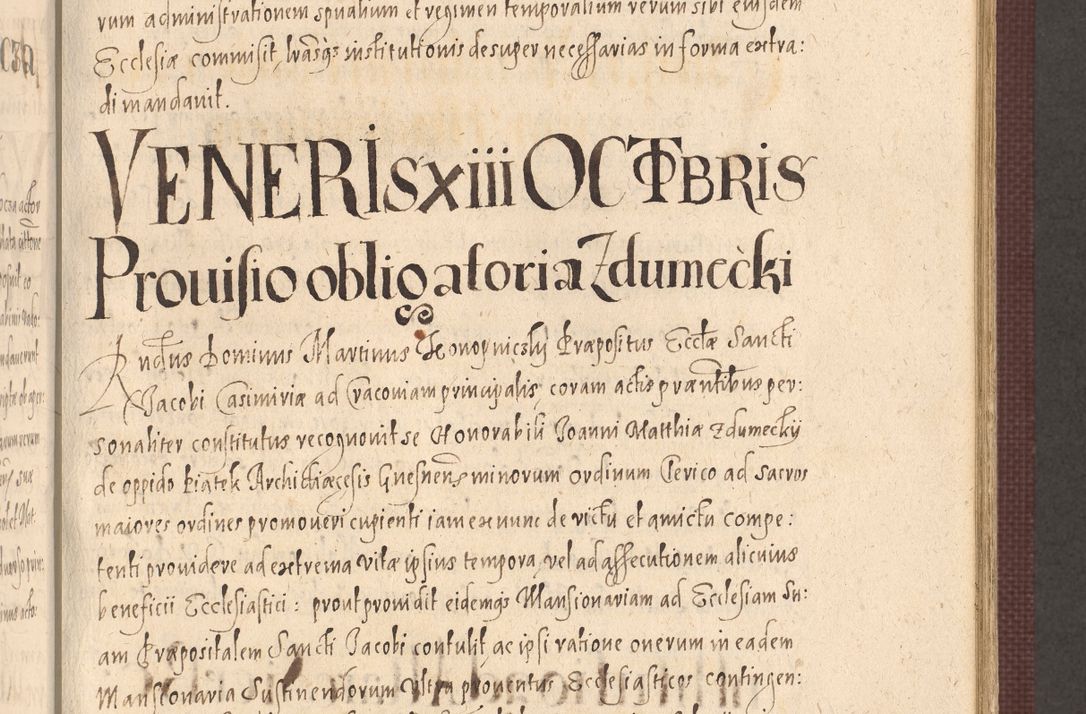 rum administrationem spūalium et regimen temporalium rerum sibi eiusdem
Ecclesiæ commisit, l̃rasq̃ institutionis desuper necessarias in forma extra:
di mandavit.
VENERIS XIII OCTOBRIS
Prouisio obligatoria Zdumecki
Rndūs Dominus Martinus Konopniczky Præpositus Eccłæ Sancti
Jacobi Casimiriæ ad Cracoviam principalis, coram actis præntībus per:
sonaliter constitutus recognovit se Honorabili Joanni Matthiæ Zdumecky
de oppido Piątek Archidiæcesis Gnesnens̃ minorum ordinum Clerico ad sacros
maiores ordines promoveri cupienti iam ex nunc de victu et amictu compe:
tenti providere ad extrema vitæ ipsius tempora, vel ad assecutionem alicuius
beneficii Ecclesiastici: prout providit eidemq̃ Mansionariam ad Ecclesiam Su:
am Præpositalem Sancti Jacobi contulit, ac ipsi ratione onerum in eadem
Mansionaria Sustinendorum ultra proventus Ecclesiasticos contingen: